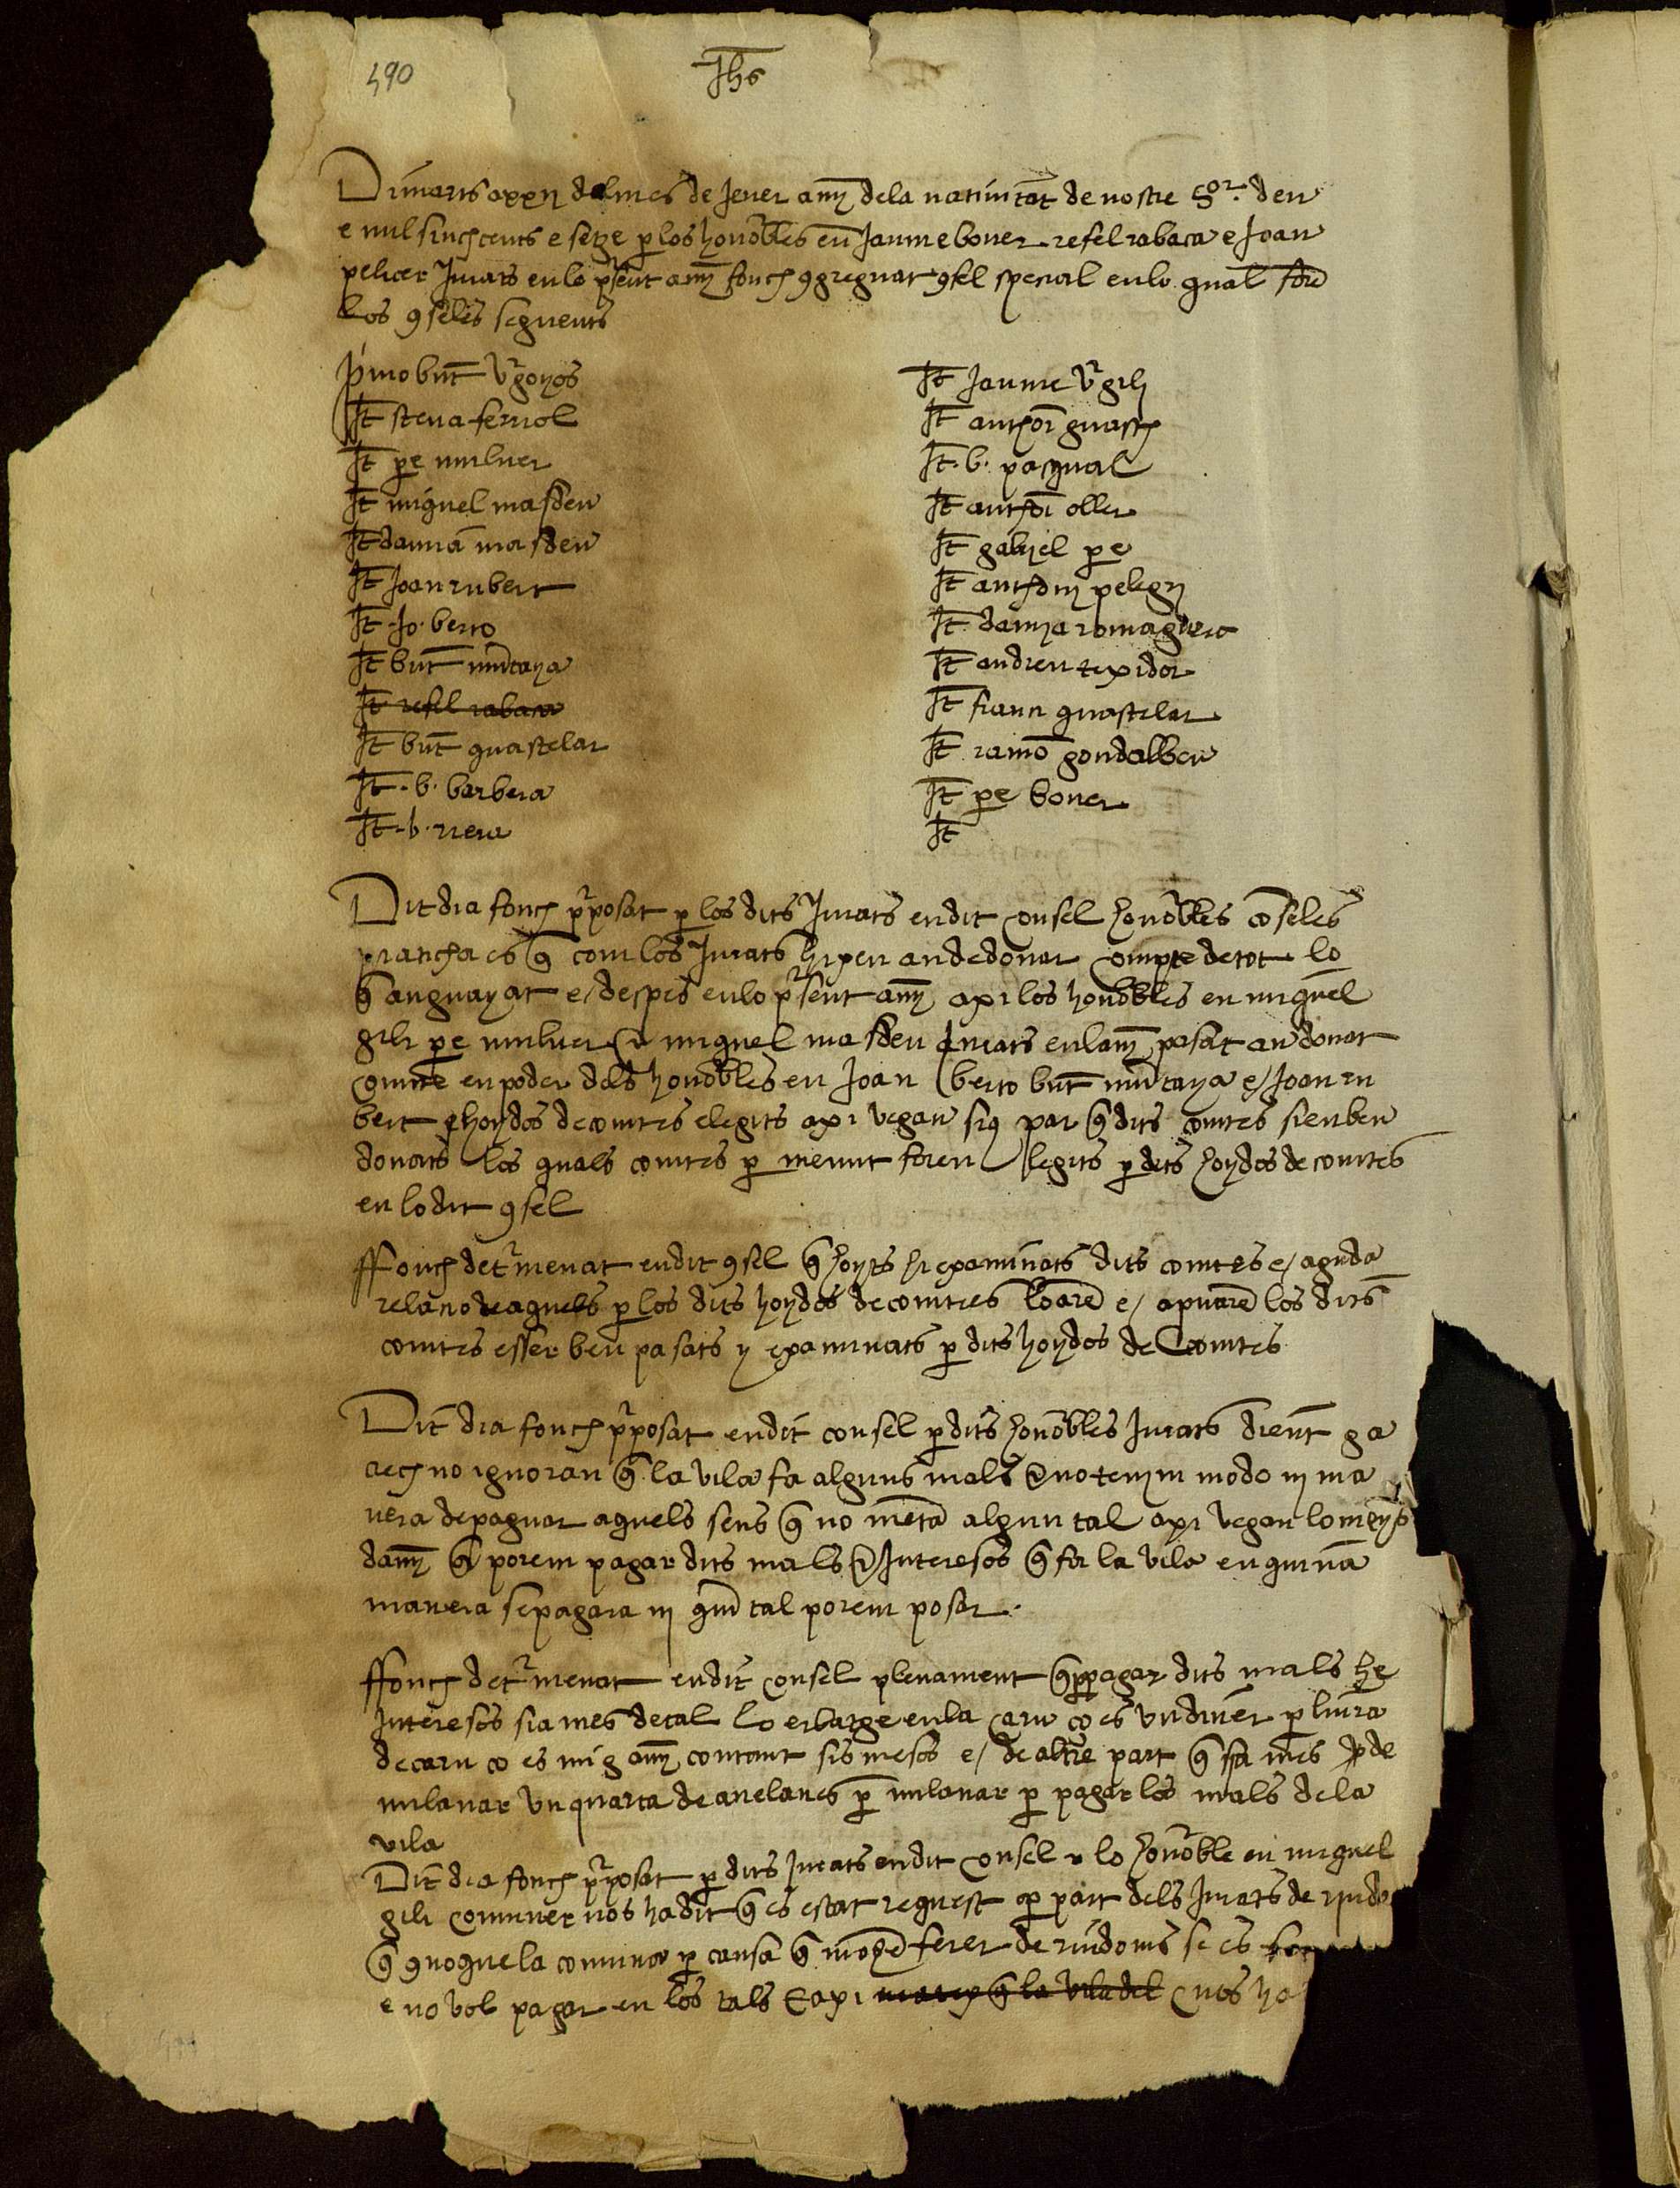 490
Jhs
Dimarts a xxij del mes de Jener any dela natiuitat de nostre Sor. deu
e mil sinch cents e setze p los honobles en Jaume boner refel rabaca e Joan
pelicer Jurats en lo psent any fonch 9greguat 9sel special en lo qual foren
los 9sellers seguents
Primo bnt vrgonyos
It steua feriol
It pe muluer
It miguel masdeu
It damia masdeu
It Joan rubert
It Jo. berto
It bnt muntanya
It refel rabaca
It bnt guastelar
It .b. barbera
It .b. riera
It Jaume vrgili
It anthoi guasch
It .b. pasqual
It anthoi oller
It gabriel pe
It anthoni pelegri
It damia romaguera
It andreu texidor
It franci guastelar
It ramo gondalbeu
It pe boner
It
Dit dia fonch pposat p los dits Jurats en dit consel honobles coselers
q com los Jurats hixen an de donar compte de tot lo
q an guanyat e despes en lo psent any axi los honobles en miguel
gili pe muluer e miguel masdeu Jurats en lany pasat an donat
comte en poder dels honobles en Joan berto bnt muntanya e Joan ru
bert hoydos de comtes elegits axi vegan sius par q dits comtes sien ben
donats los quals comtes p menut foren legits p dits hoydos de comtes
en lo dit 9sel
ffonch detrmenat en dit 9sel q hoyts hi examinats dits comtes e aguda
relatio de aquels p los dits hoydos de comtes loaren e aprouaren los dits
comtes esser ben pasats y examinats p dits hoydos de Comtes
Dit dia fonch pposat en dit consel p dits honobles Jurats dient ja
aech no ignoran q la vila fa alguns mals e no tenim modo ni ma
nera de paguar aquels sens q no metam algun tal axi vegan lo menys
dany q porem pagar dits mals e Interesos q fa la vila en quina
manera se pagara ni quin tal porem posar.
ffonch detrmenat en dit consel plenament q p pagar dits mals he
Interesos sia mes de tal lo erbatge en la carn co es vn diner p liura
de carn co es mig any contant sis mesos e de altre part q sia mes de
milanar vn quarta de auelanes p milanar p pagar los mals dela
vila
Dit dia fonch pposat p dits Jurats en dit consel lo honoble en miguel
gili comuner nos ha dit q es estat request p part dels Jurats de riudo
q 9uoque la comuna p causa q mosen ferer de riudoms se es
e no vol pagar en los tals e axi q la vila del nos ha